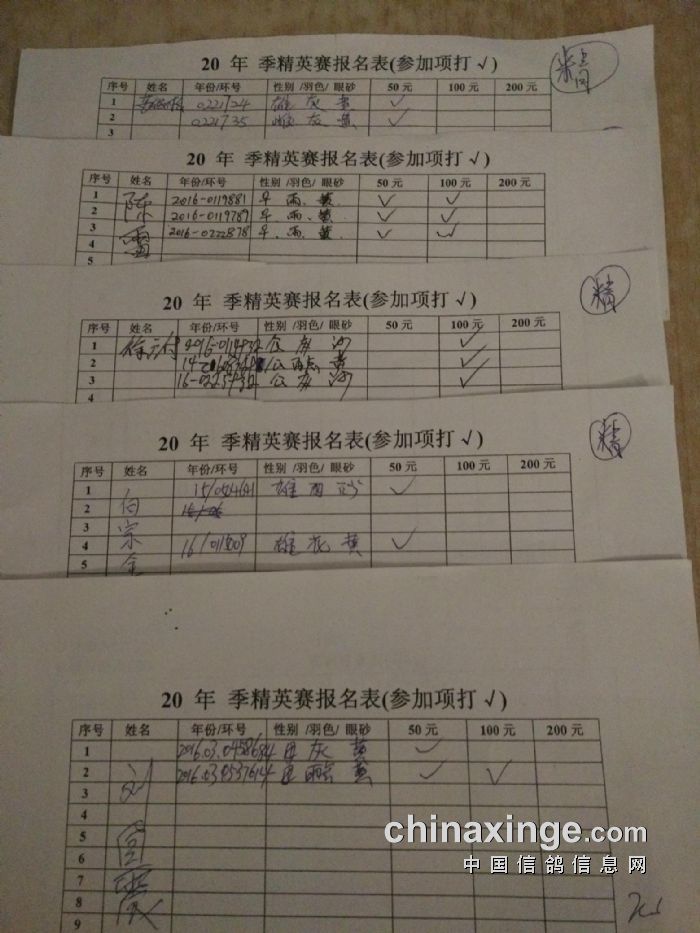 20 年 季精英赛报名表(参加项打√)
精
序号 姓名 年份/环号 性别 /羽色/ 眼砂 50 元 100 元 200 元
1 0221724 雄 灰 黄 ✓
2 0221735 雌 灰 黄 ✓
3
20 年 季精英赛报名表(参加项打√)
序号 姓名 年份/环号 性别 /羽色/ 眼砂 50 元 100 元 200 元
1 陈雷 2016-0119881 雨、黄. ✓ ✓
2 2016-0119789 雨、黄. ✓ ✓
3 2016-0222878 雨、黄. ✓ ✓
4
5
20 年 季精英赛报名表(参加项打√)
精
序号 姓名 年份/环号 性别 /羽色/ 眼砂 50 元 100 元 200 元
1 公 灰 沙 ✓
2 公 雨点 黄 ✓
3 公 灰 沙 ✓
4
20 年 季精英赛报名表(参加项打√)
精
序号 姓名 年份/环号 性别 /羽色/ 眼砂 50 元 100 元 200 元
1 雄 雨 砂 ✓
2 白宗全
3
4 雄 花 黄 ✓
5
20 年 季精英赛报名表(参加项打√)
序号 姓名 年份/环号 性别 /羽色/ 眼砂 50 元 100 元 200 元
1 灰 黄 ✓
2 2016.03.0537614 雨点 黄 ✓ ✓
3 刘
4
5
6
7
8
9
chinaxinge.com
中国信鸽信息网